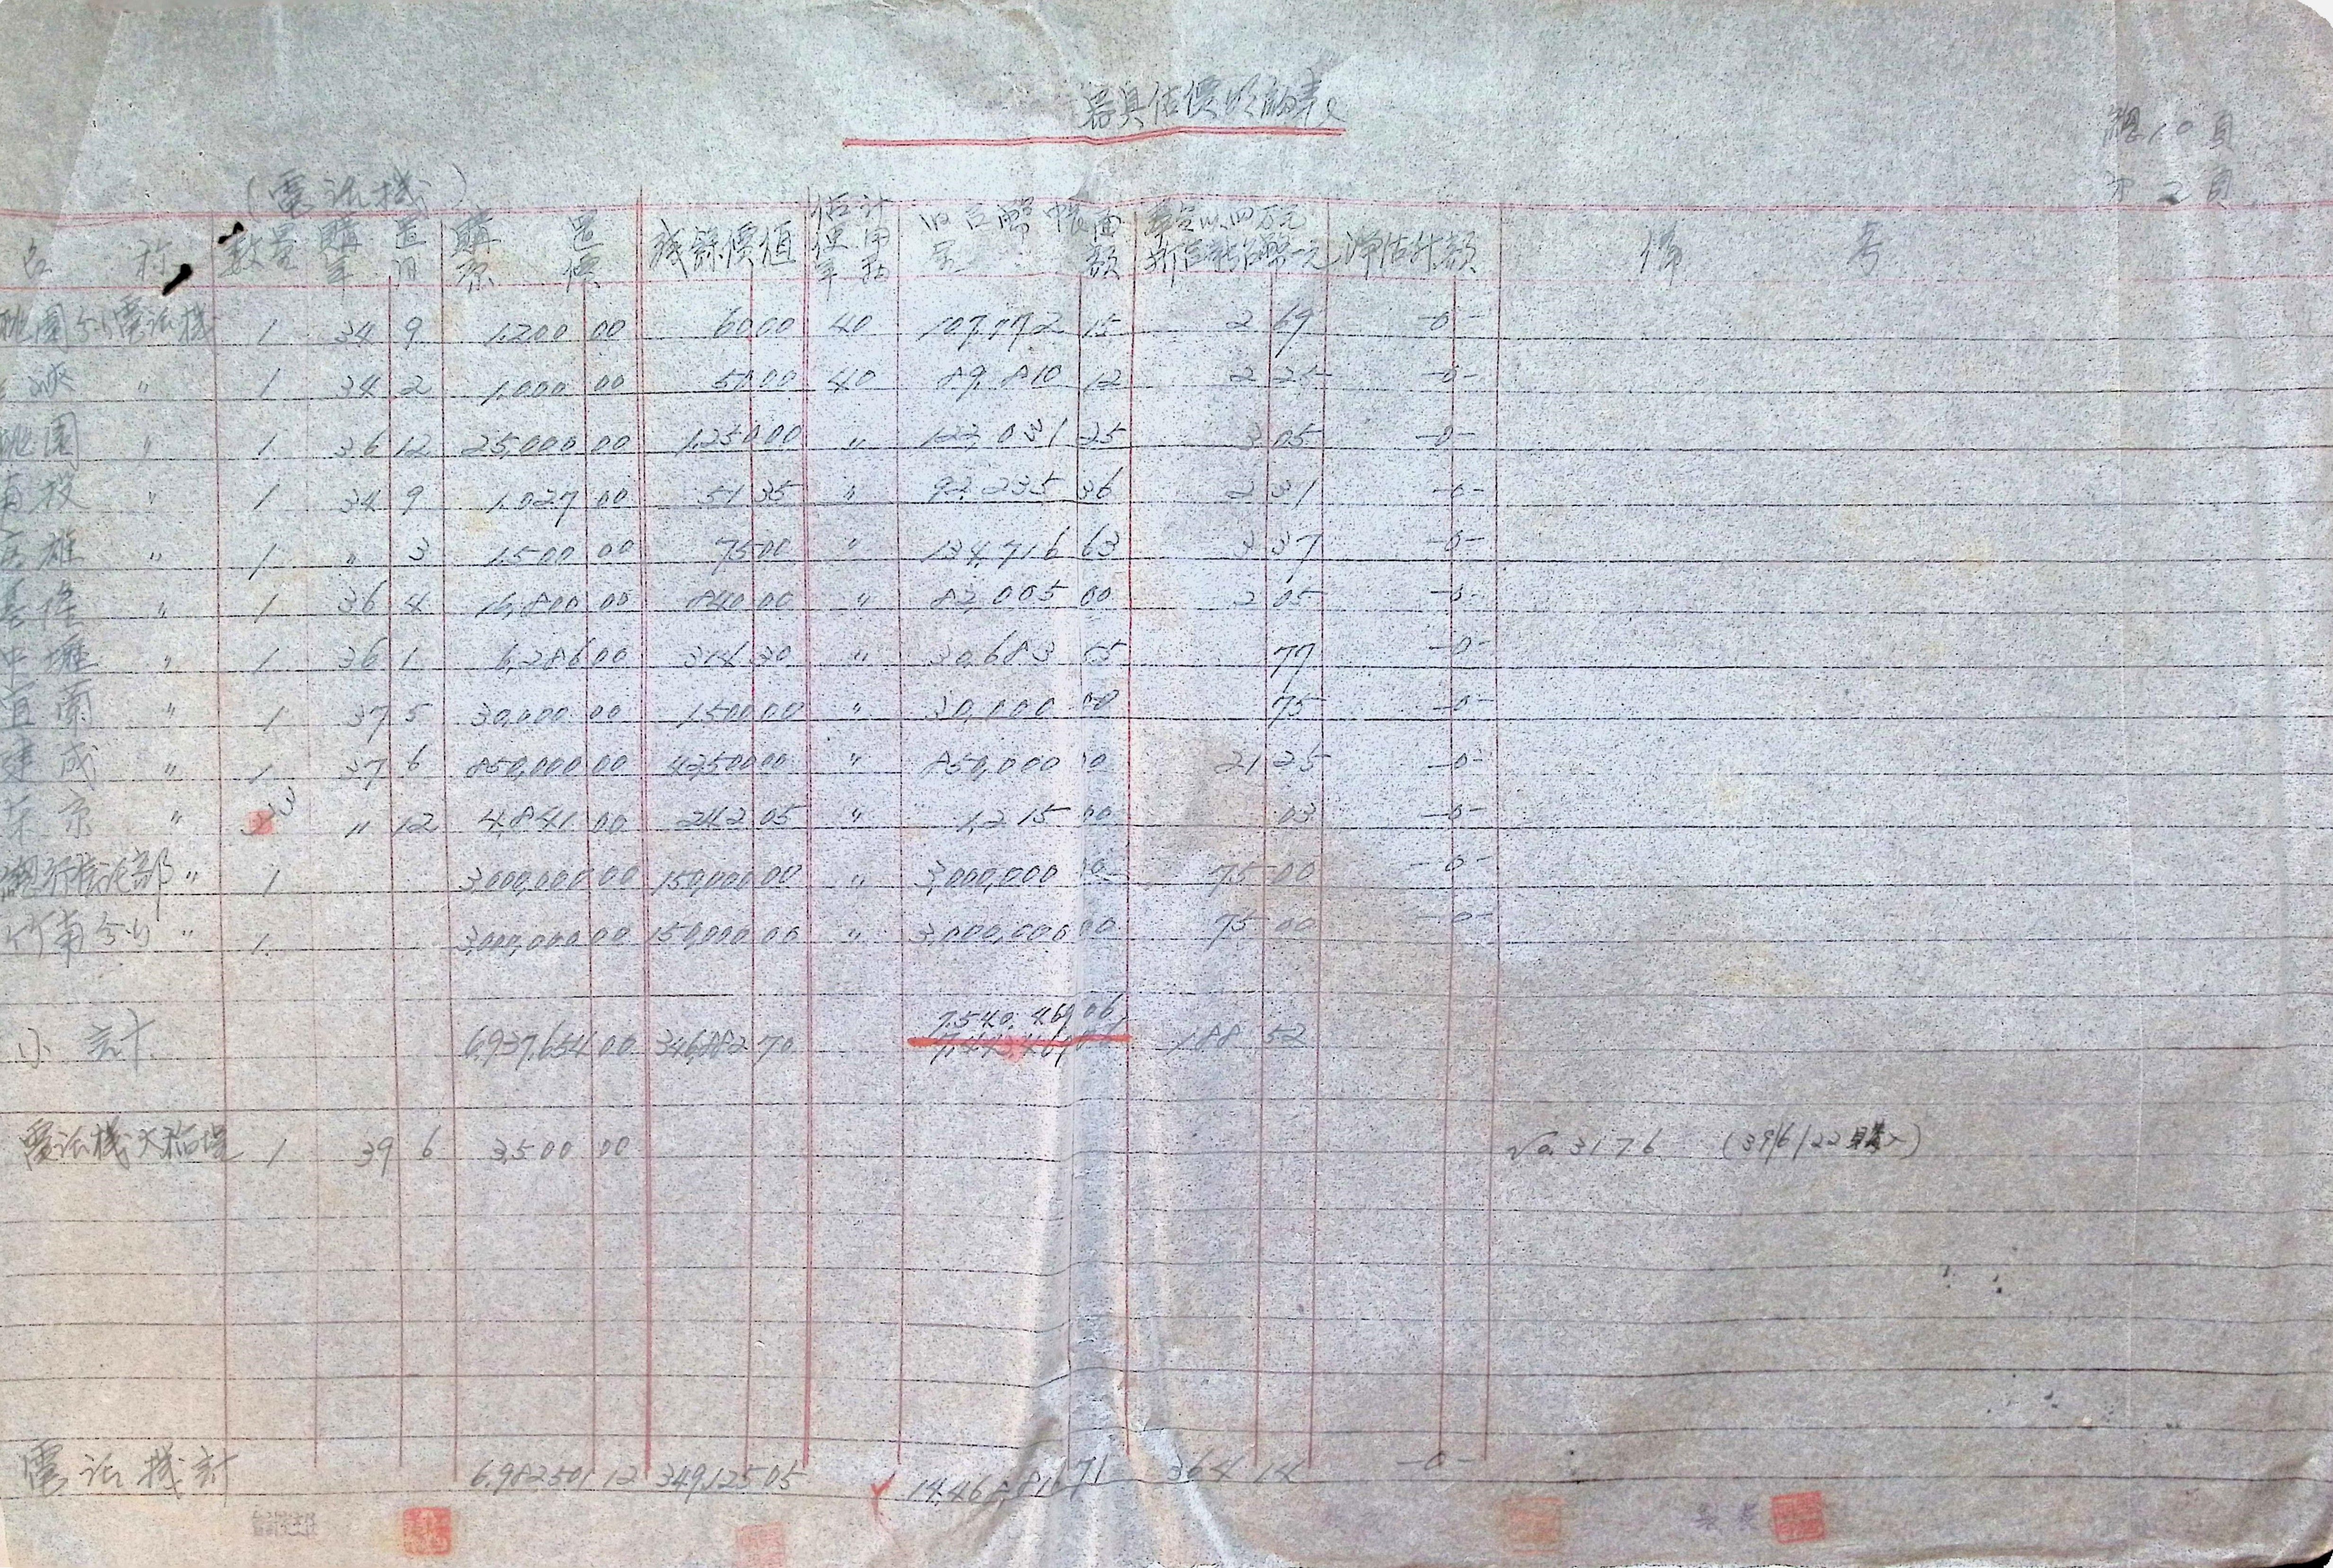 器具估價明細表
總10頁
第2頁
(電話機)
名稱 數量 購置年月 購置原價 殘餘價值 估計使用年數 旧台幣帳面 額 奉定以四万元折合新台幣一元 淨估升額 備考
桃園分行電話機 1 34 9 1,200 00 60 00 40 107,772 15 2 69 -0-
〃 1 34 2 1,000 00 50 00 40 89,810 12 2 25 -0-
桃園 〃 1 36 12 25,000 00 1,250 00 〃 122,031 25 3 05 -0-
南投 〃 1 34 9 1,027 00 51 35 〃 92,235 36 2 31 -0-
高雄 〃 1 〃 3 1,500 00 75 00 〃 134,716 63 3 37 -0-
基隆 〃 1 36 4 16,800 00 840 00 〃 82,005 00 2 05 -0-
中壢 〃 1 36 1 6,286 00 314 30 〃 30,683 55 77 -0-
宜蘭 〃 1 37 5 30,000 00 1,500 00 〃 30,000 00 75 -0-
建成 〃 1 37 6 850,000 00 42,500 00 〃 850,000 00 21 25 -0-
東京 〃 33 〃 12 4,841 00 242 05 〃 1,215 00 03 -0-
總行 部 〃 1 3,000,000 00 150,000 00 〃 3,000,000 00 75 00 -0-
竹南分行 〃 1 3,000,000 00 150,000 00 〃 3,000,000 00 75 00 -0-
7,540,469 06
小計 6,937,654 00 346,882 70 188 52
電話機大稻埕 1 39 6 3,500 00 No. 3176 (39/6/22購入)
電話機計 6,982,501 12 349,125 05 71 364 14 -0-